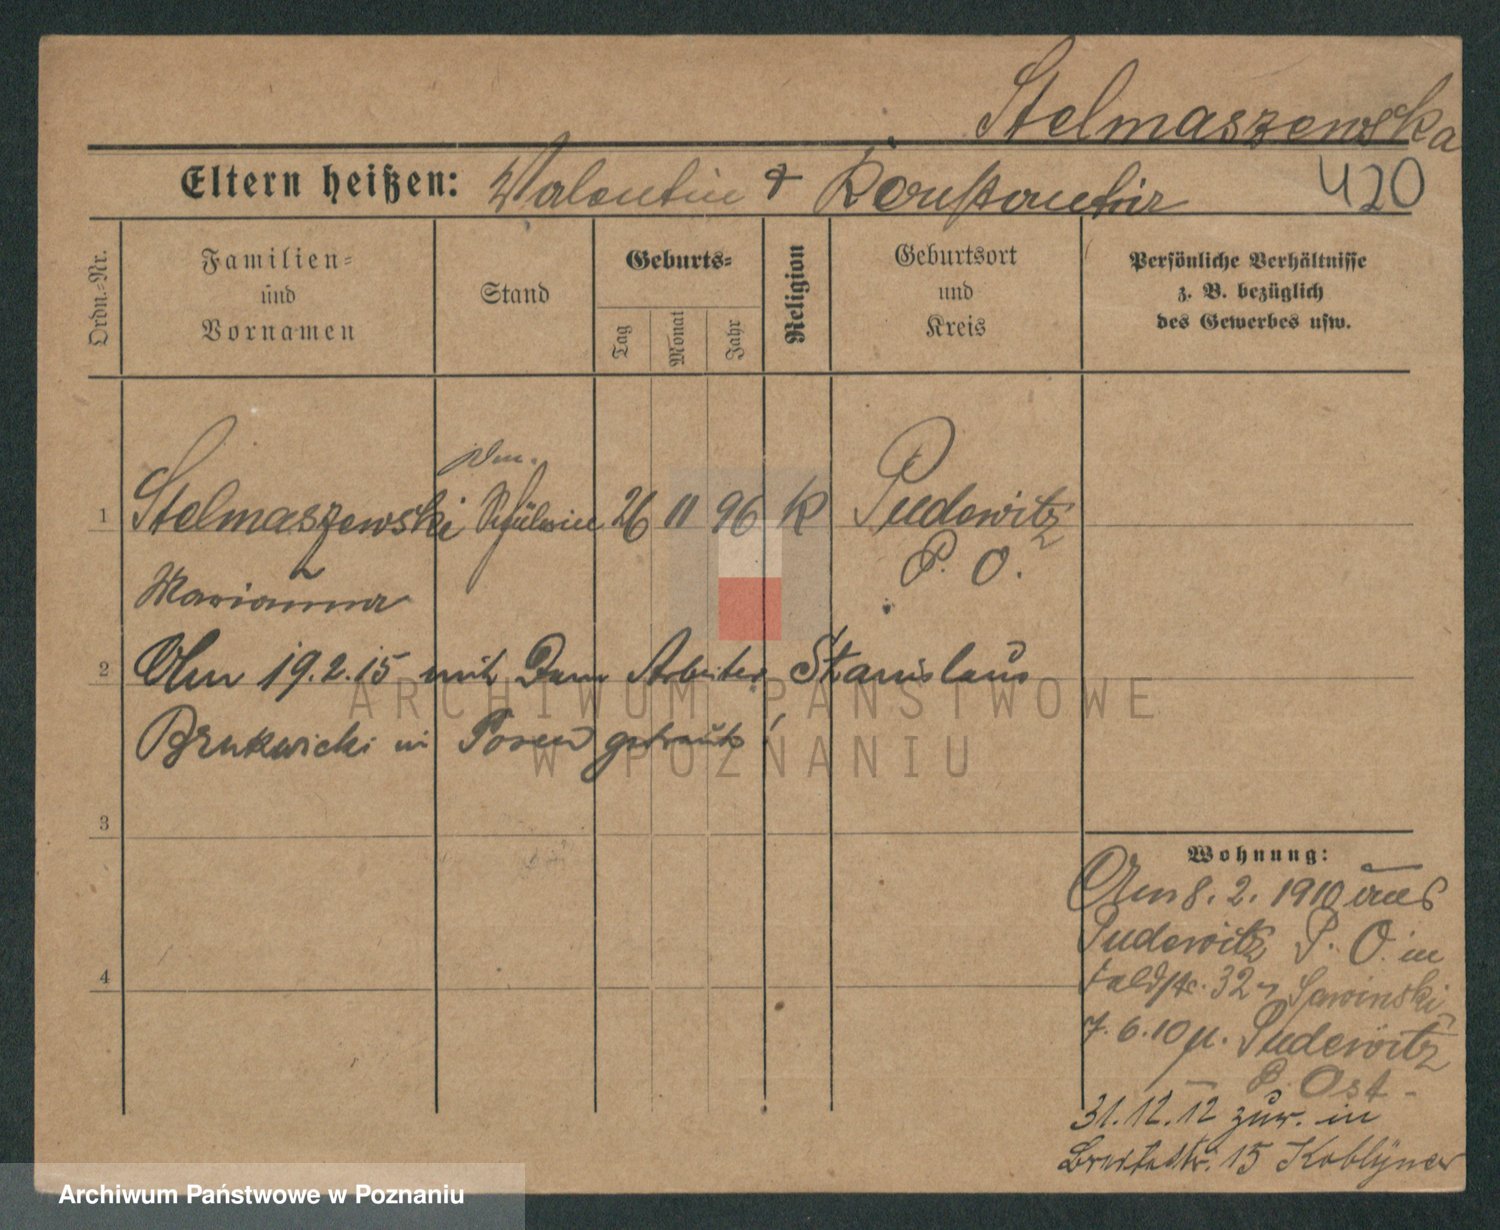 Stelmaszewska
Eltern heißen: Valentin & Konstantin
420
Ordn.-Nr.
Familien-
und
Vornamen
Stand
Geburts-
Tag
Monat
Jahr
Religion
Geburtsort
und
Kreis
Persönliche Verhältnisse
z. B. bezüglich
des Gewerbes usw.
1 Stelmaszewski Schülerin 26 11 96 K Pudewitz
P. O.
Marianna
2 Am 19.2.15 mit dem Arbeiter Stanislaus
Brukwicki in Posen getraut
3
4
Wohnung:
Am 8. 2. 1910 aus
Pudewitz P. O. in
32 Sawinski
7. 6. 10 Pudewitz
P. Ost -
31.12.12 zur. in
Breitestr. 15
ARCHIWUM PAŃSTWOWE
W POZNANIU
Archiwum Państwowe w Poznaniu